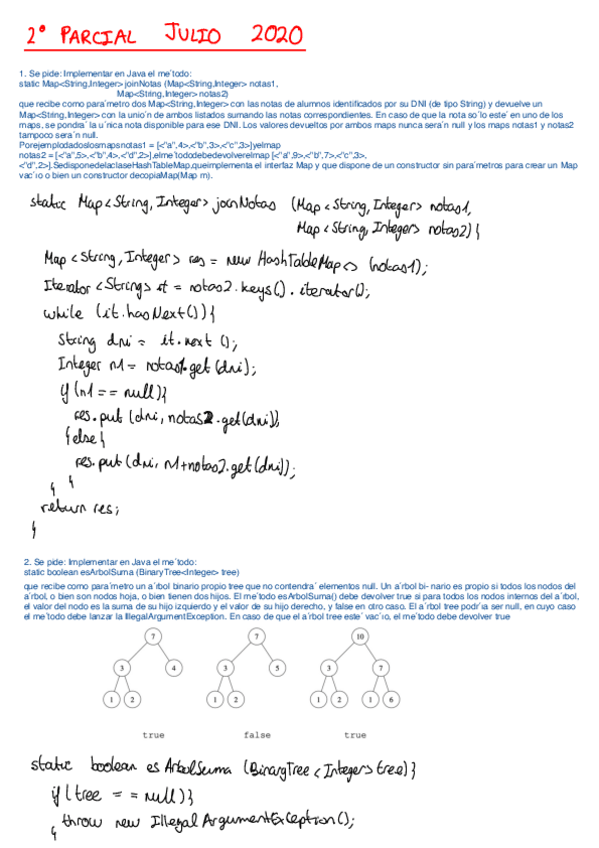 2º PARCIAL JULIO 2020
1. Se pide: Implementar en Java el me´todo:
static Map<String,Integer> joinNotas (Map<String,Integer> notas1,
Map<String,Integer> notas2)
que recibe como para´metro dos Map<String,Integer> con las notas de alumnos identificados por su DNI (de tipo String) y devuelve un
Map<String,Integer> con la unio´n de ambos listados sumando las notas correspondientes. En caso de que la nota so´lo este´ en uno de los
maps, se pondra´ la u´nica nota disponible para ese DNI. Los valores devueltos por ambos maps nunca sera´n null y los maps notas1 y notas2
tampoco sera´n null.
Porejemplodadoslosmapsnotas1 = [<"a",4>,<"b",3>,<"c",3>]yelmap
notas2 = [<"a",5>,<"b",4>,<"d",2>],elme´tododebedevolverelmap [<"a",9>,<"b",7>,<"c",3>,
<"d",2>].SedisponedelaclaseHashTableMap,queimplementa el interfaz Map y que dispone de un constructor sin para´metros para crear un Map
vac´ıo o bien un constructor decopiaMap(Map m).
static Map<String, Integer> joinNotas (Map<String, Integer> notas1,
Map<String, Integer> notas2) {
Map<String, Integer> res = new HashTableMap<> (notas1);
Iterator<String> it = notas2.keys().iterator();
while (it.hasNext()){
String dni = it.next ();
Integer n1 = notas1.get(dni);
if (n1 == null){
res.put (dni, notas2.get(dni));
}else{
res.put (dni, n1+notas2.get(dni));
}
}
return res;
}
2. Se pide: Implementar en Java el me´todo:
static boolean esArbolSuma (BinaryTree<Integer> tree)
que recibe como para´metro un a´rbol binario propio tree que no contendra´ elementos null. Un a´rbol bi- nario es propio si todos los nodos del
a´rbol, o bien son nodos hoja, o bien tienen dos hijos. El me´todo esArbolSuma() debe devolver true si para todos los nodos internos del a´rbol,
el valor del nodo es la suma de su hijo izquierdo y el valor de su hijo derecho, y false en otro caso. El a´rbol tree podr´ıa ser null, en cuyo caso
el me´todo debe lanzar la IllegalArgumentException. En caso de que el a´rbol tree este´ vac´ıo, el me´todo debe devolver true
7 7 10
3 4 3 5 3 7
1 2 1 2 1 2 1 6
true false true
static boolean esArbolSuma (BinaryTree<Integer> tree){
if (tree == null){
throw new IllegalArgumentException();
}